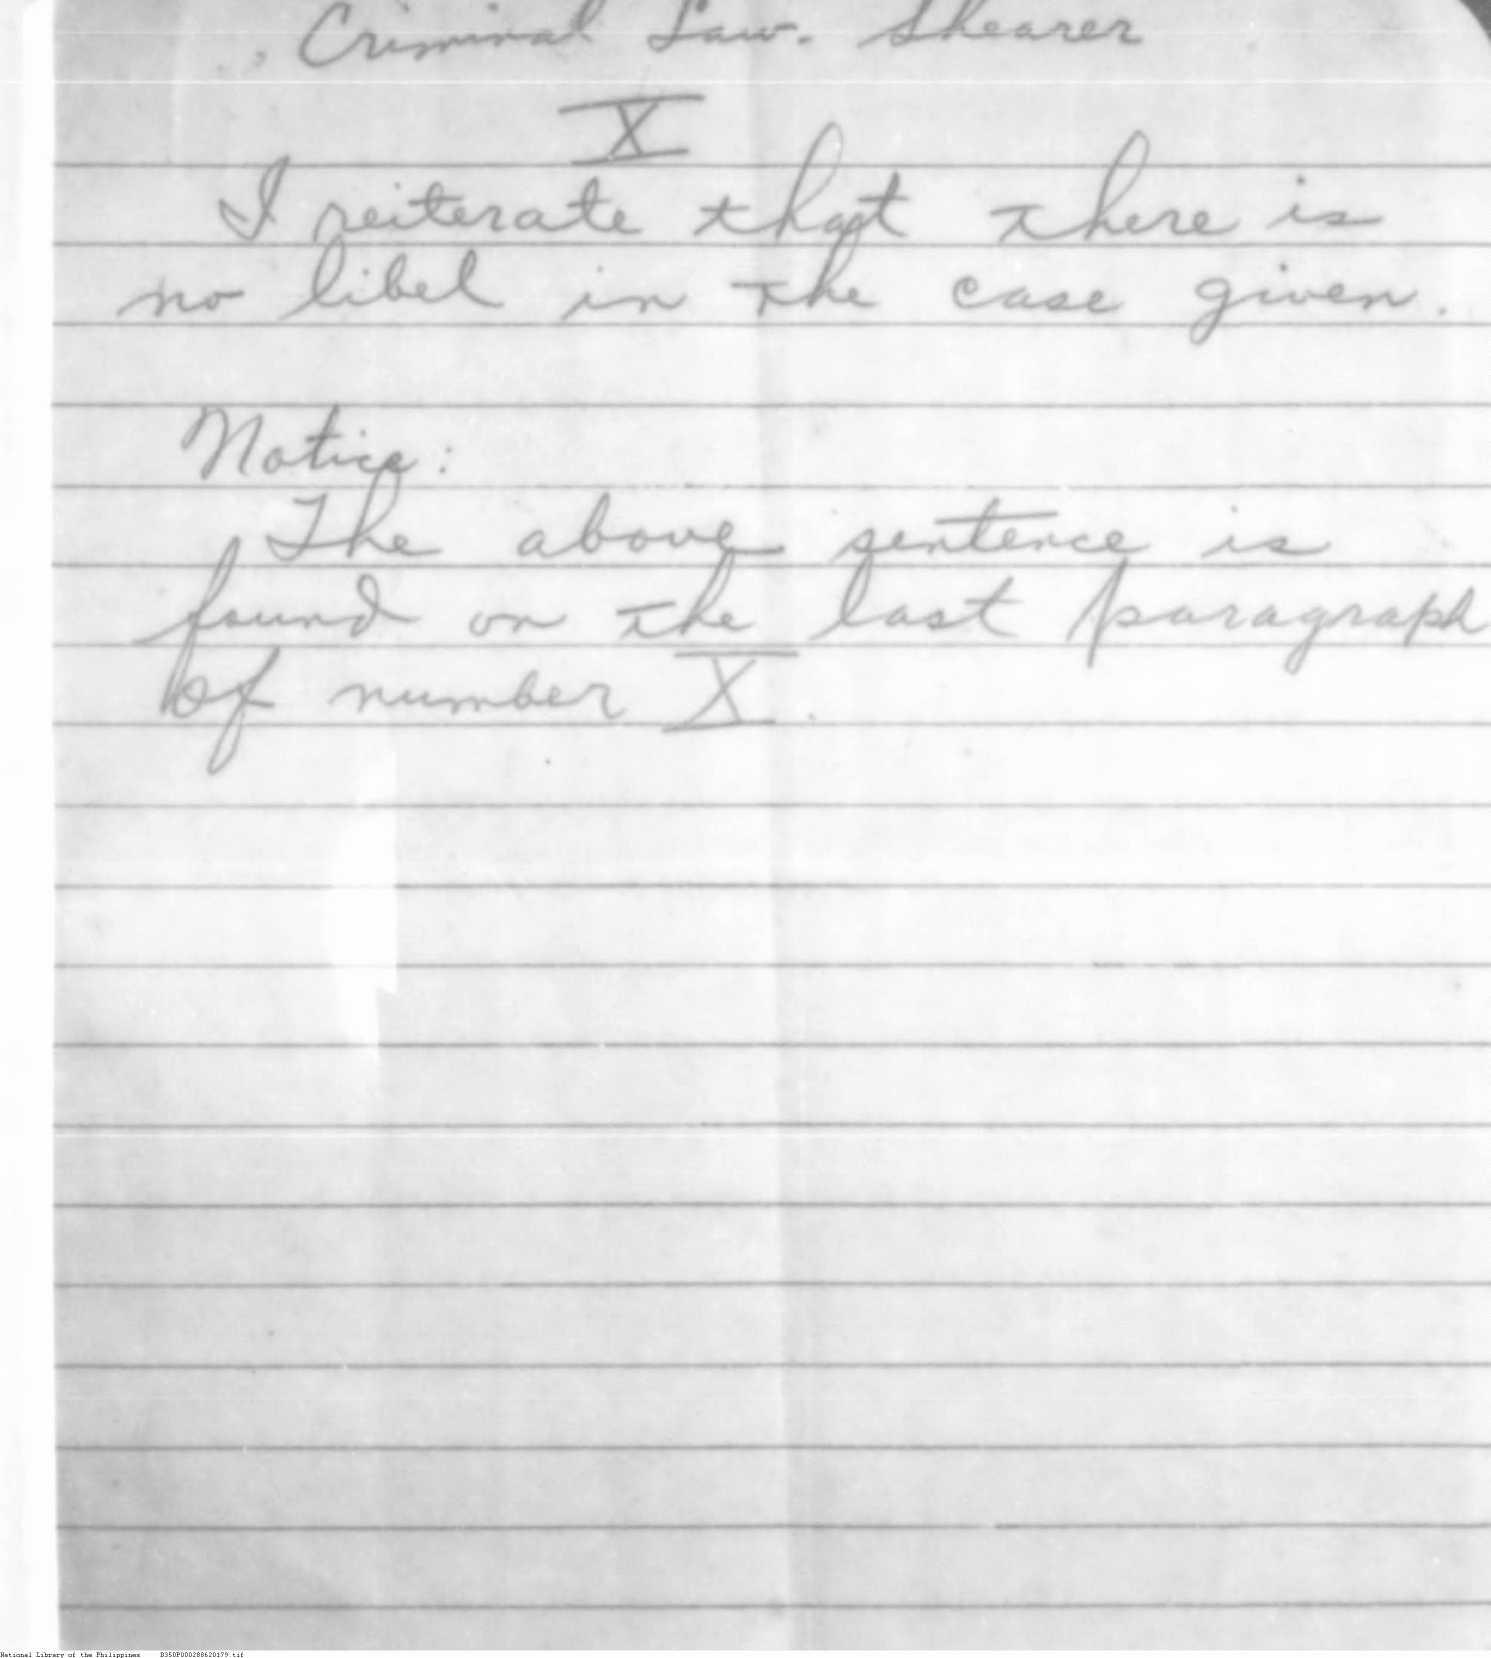 Criminal Law. Shearer
X
I reiterate that there is
no libel in the case given.
Notice:
The above sentence is
found on the last paragraph
of number X.
National Library of the Philippines D350P000288620179.tif